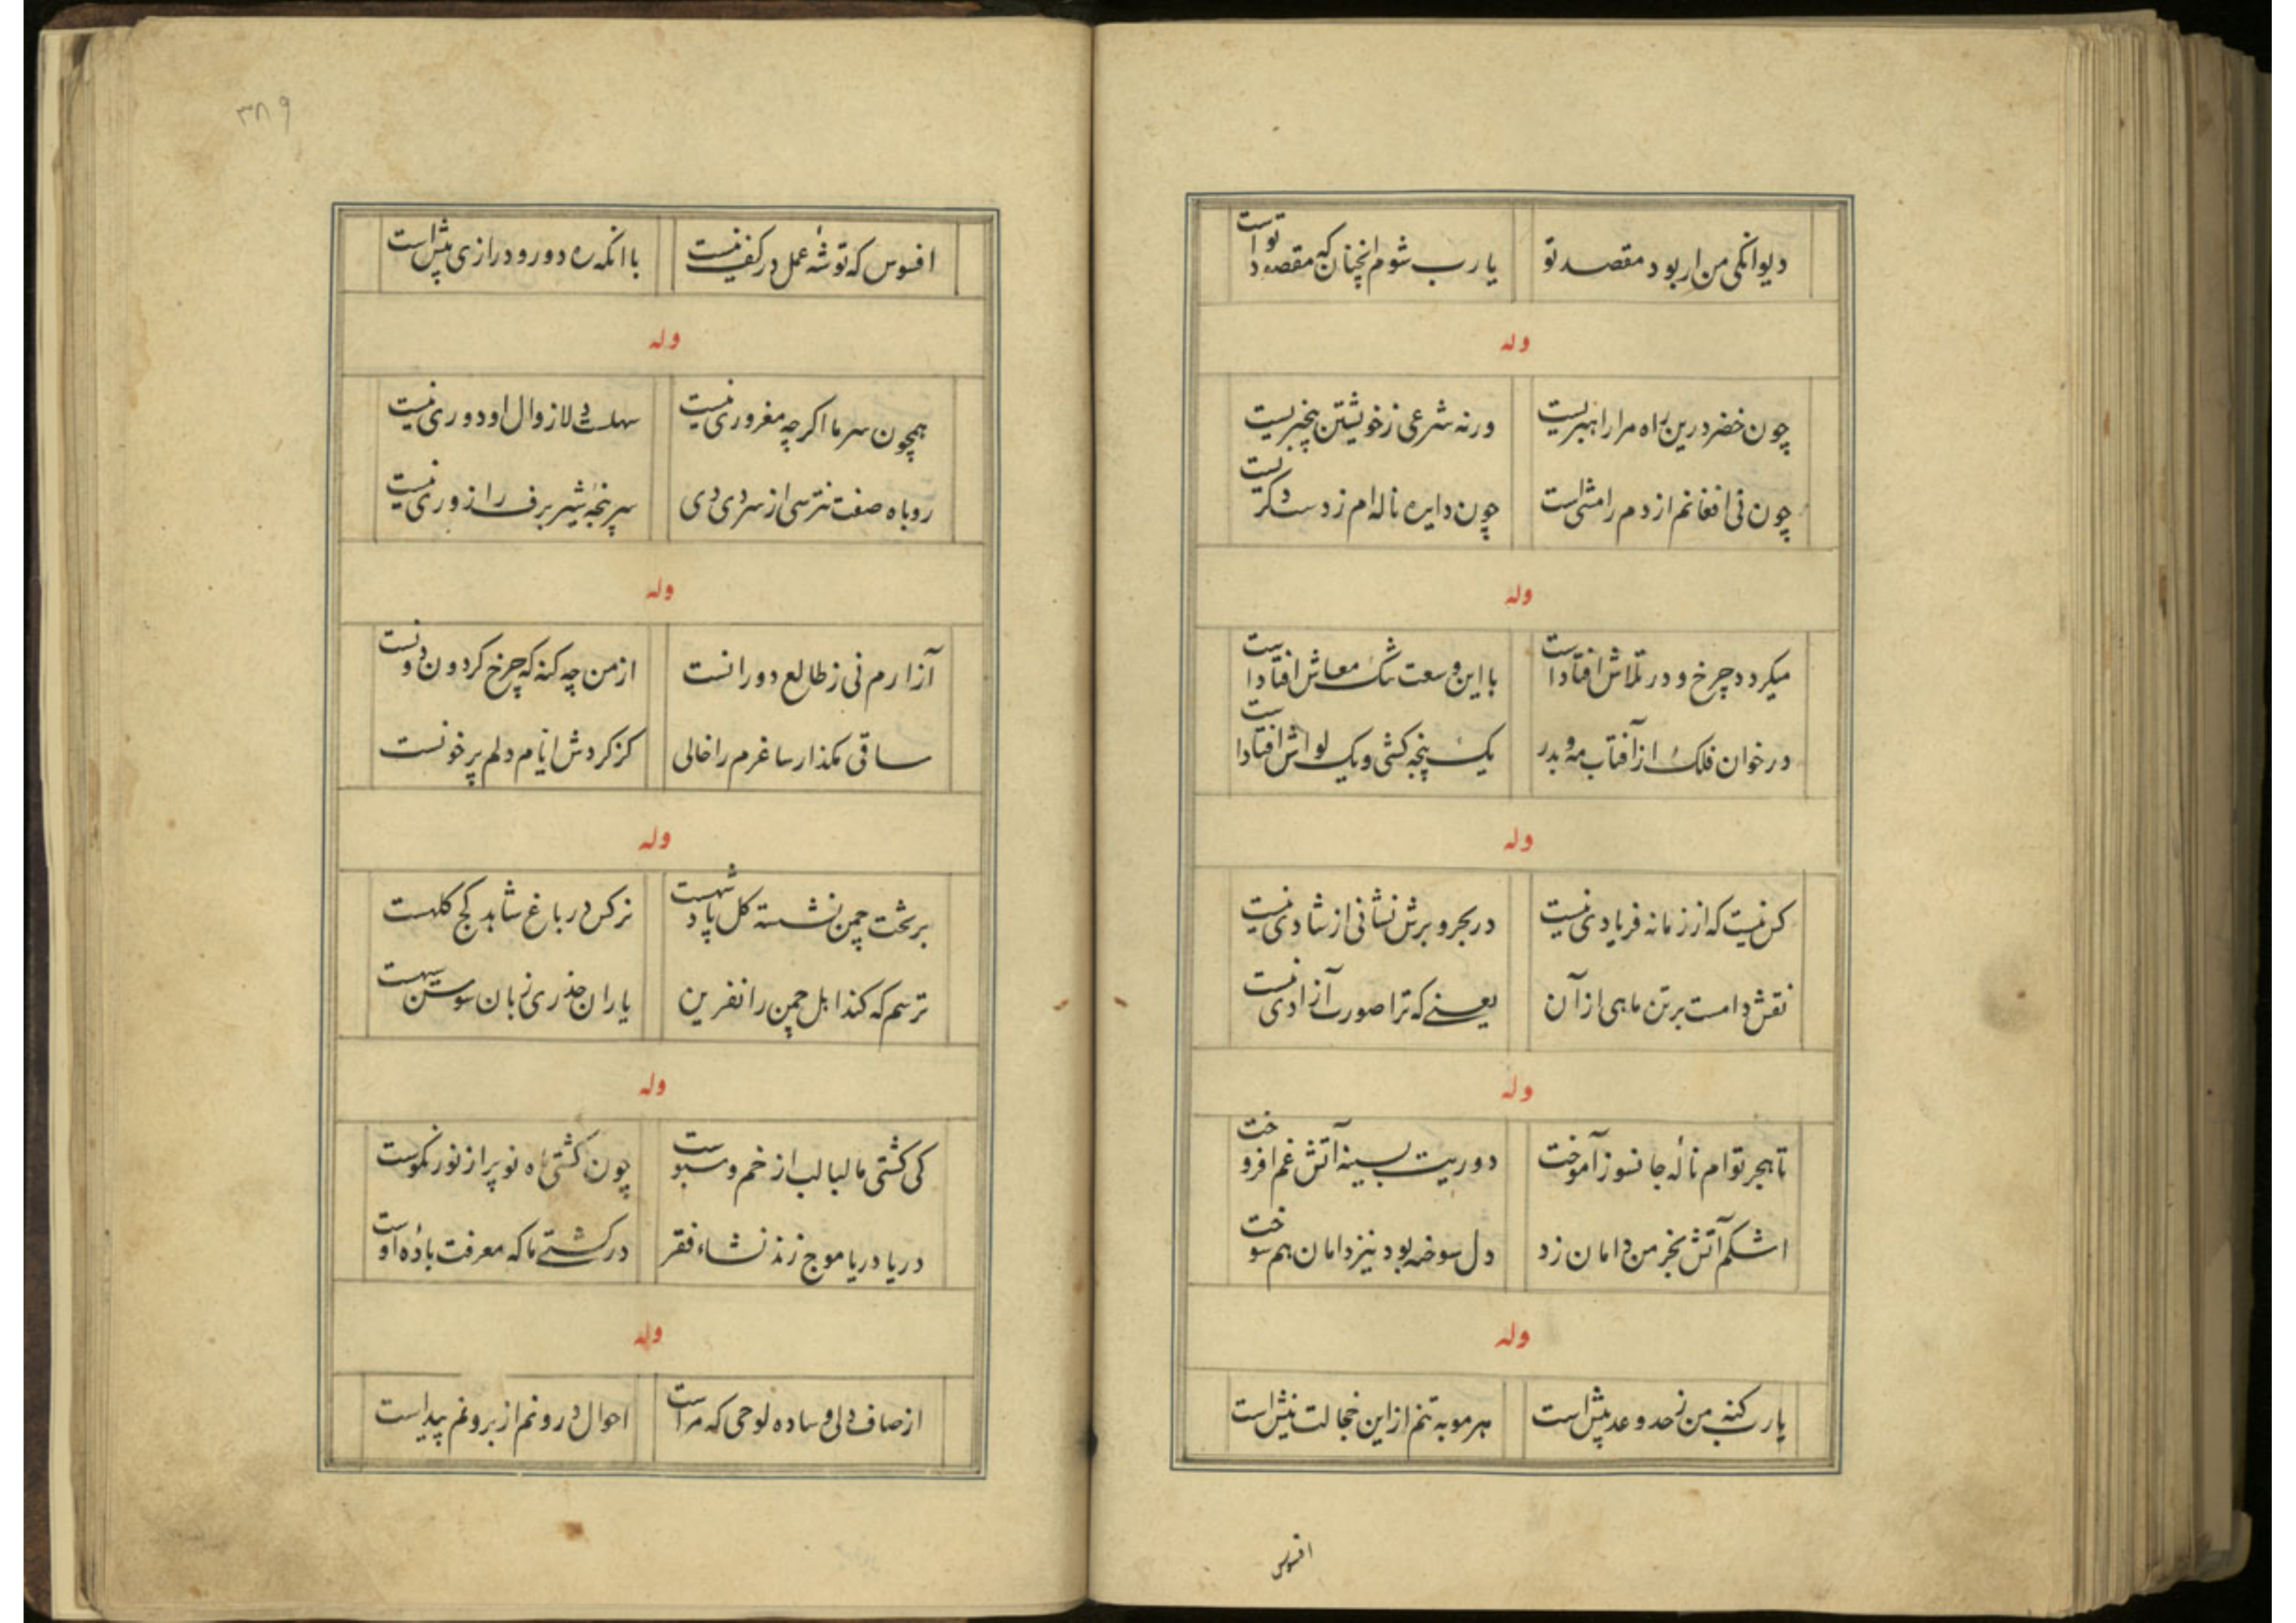 دیوانکی من ار بود مقصد تو یا رب شوم انچنان که مقصود تو است
وله
چون خضر درین راه مرا راهبریست ورنه شرعی ز خویشتن بیخبریست
چون نی افغانم از دم رامشی است چون دایره ناله‌ام ز دست دکریست
وله
میکردد چرخ و در تلاش افتاداست با این وسعت تنک معاش افتاداست
در خوان فلک از آفتاب و مه بدر یک پنجه کشی و یک لواش افتاداست
وله
کس نیست که از زمانه فریادی نیست در بحر و برش نشانی از شادی نیست
نقش دامست بر تن ماهی از آن یعنی که ترا صورت آزادی نیست
وله
تا هجر توام نالهٔ جانسوز آموخت دوریت بسینه آتش غم افروخت
اشکم آتش بخرمن دامان زد دل سوخته بود نیز دامان هم سوخت
وله
یا رب کنه من ز حد و عد بیش است هر مو به تنم از این خجالت نیش است
افسوس
۳۸۹
افسوس که توشهٔ عمل در کف نیست با انکه ره دور و درازی پیش است
وله
همچون سرما اکرچه مغروری نیست سهلست دلا زوال او دوری نیست
روباه صفت نترسی از سردی دی سرپنجهٔ شیر برف را زوری نیست
وله
آزارم نی ز طالع دورانست از من چه کنه که چرخ کردون دونست
ساقی مکذار ساغرم را خالی کز کردش ایام دلم پر خونست
وله
بر تخت چمن نشسته کل پادشهست نرکس در باغ شاهد کج کلهست
ترسم که کند اهل چمن را نفرین یاران حذری زبان سوسن سیهست
وله
کی کشتی ما لبالب از خم و سبوست چون کشتی ماه نو پر از نور نکوست
دریا دریا موج زند نشاء فقر در کشتی ما که معرفت بادهٔ اوست
وله
از صاف دلی و ساده لوحی که مراست احوال درونم از برونم پیداست